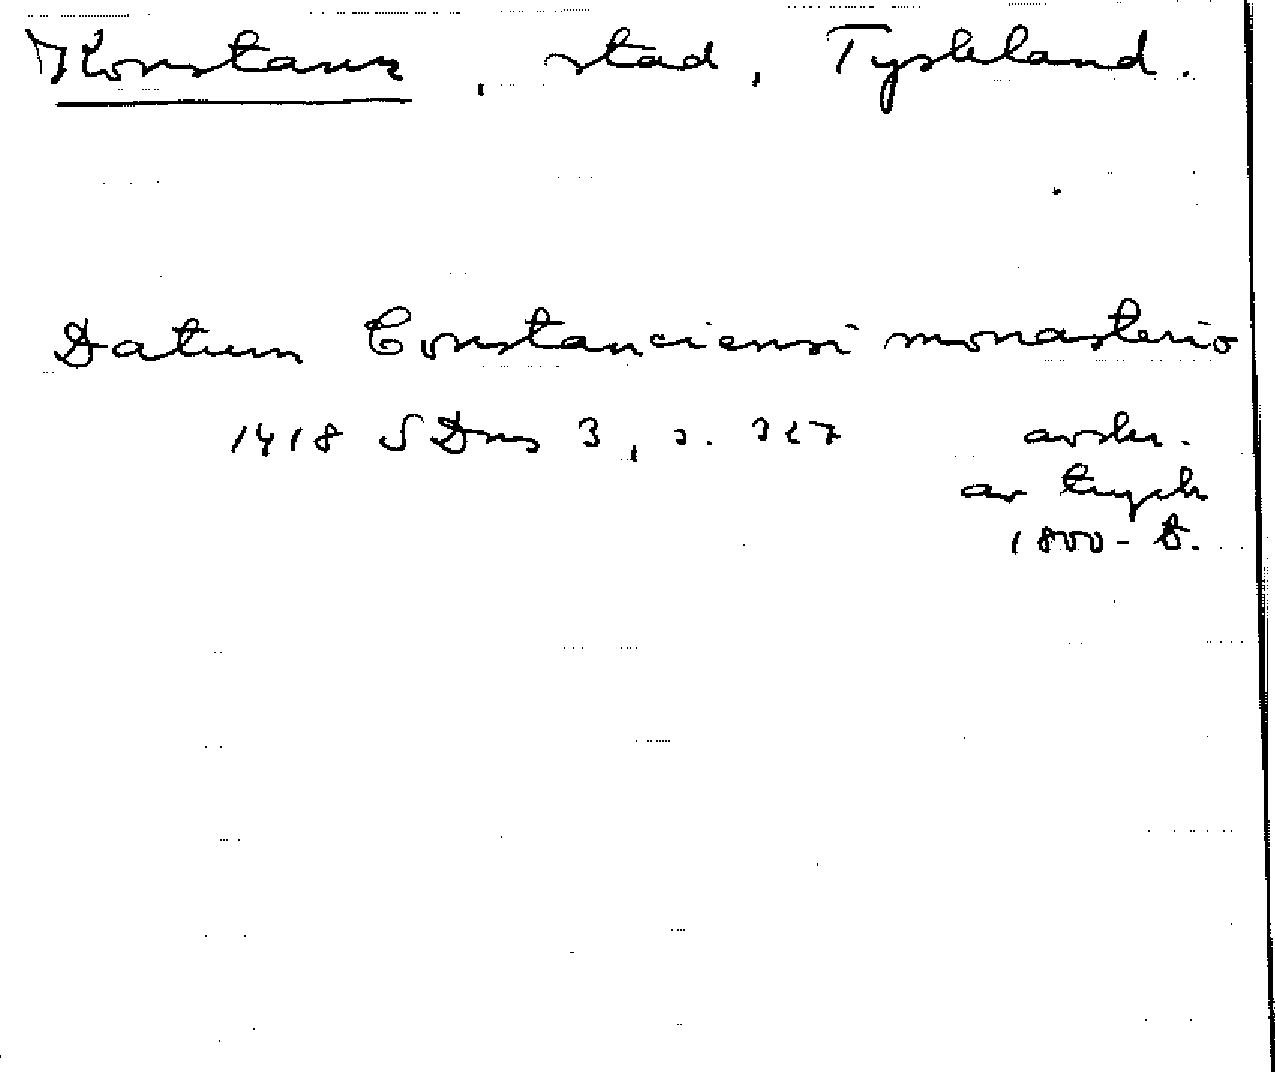 Konstanz, stad, Tyskland.
Datum Constanciensi monasterio
1418 SDns 3, s. 327 avskr.
av tryck
1800-t.